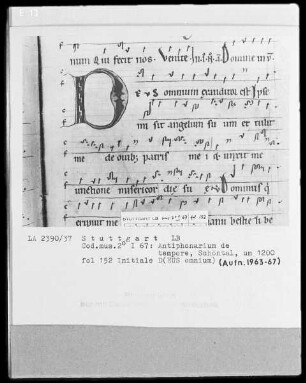 num q̄ui fecit nos. Venite Domine in
D
EuS omnium exauditor est Ipse
mi sit angelum su um et tulit
me de ouibꝫ patris me i et unxit me
unctione misericor die su e Dominus q
eripuit me
LA 2390/37 Stuttgart LB
Cod.mus.2° I 67: Antiphonarium de
tempore, Schöntal, um 1200
fol 152 Initiale D(EUS omnium) (Aufn.1963-67)